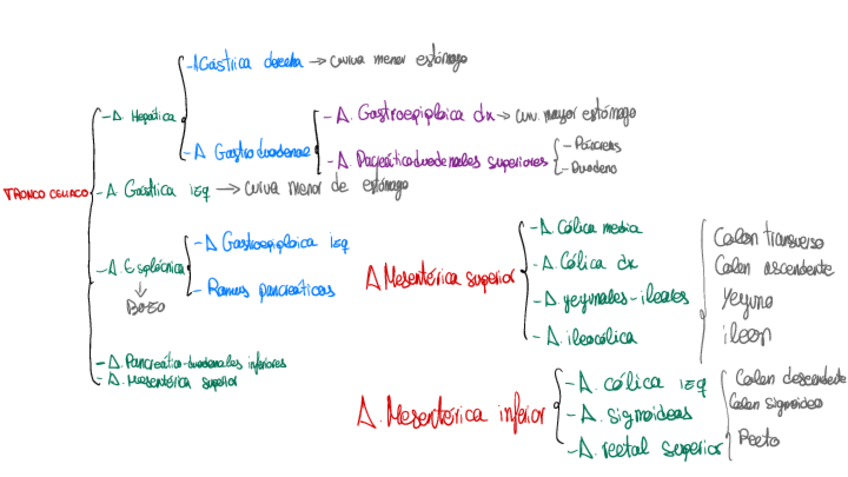 -A Gástrica derecha → curva menor estómago
- A. Hepática
- A Gastroduodenal
- A. Gastroepiploica dx → curv. mayor estómago
- A. Pacreáticoduodenales superiores
- Páncreas
- Duodeno
TRONCO CELIACO
- A Gástrica izq → curva menor de estómago
- A. Esplécnica
↓
BAZO
- A Gastroepiploica izq
- Ramus pancreáticas
- A. Pancreático-duodenales inferiores
- A. Mesentérica superior
A Mesentérica superior
- A. Cólica media
- A. Cólica dx
- A. yeyunales-ileales
- A. ileocólica
Colon transverso
Colon ascendente
Yeyuno
ileon
A. Mesentérica inferior
- A. cólica izq
- A. sigmoideas
- A. rectal superior
Colon descendente
Colon sigmoideo
Recto